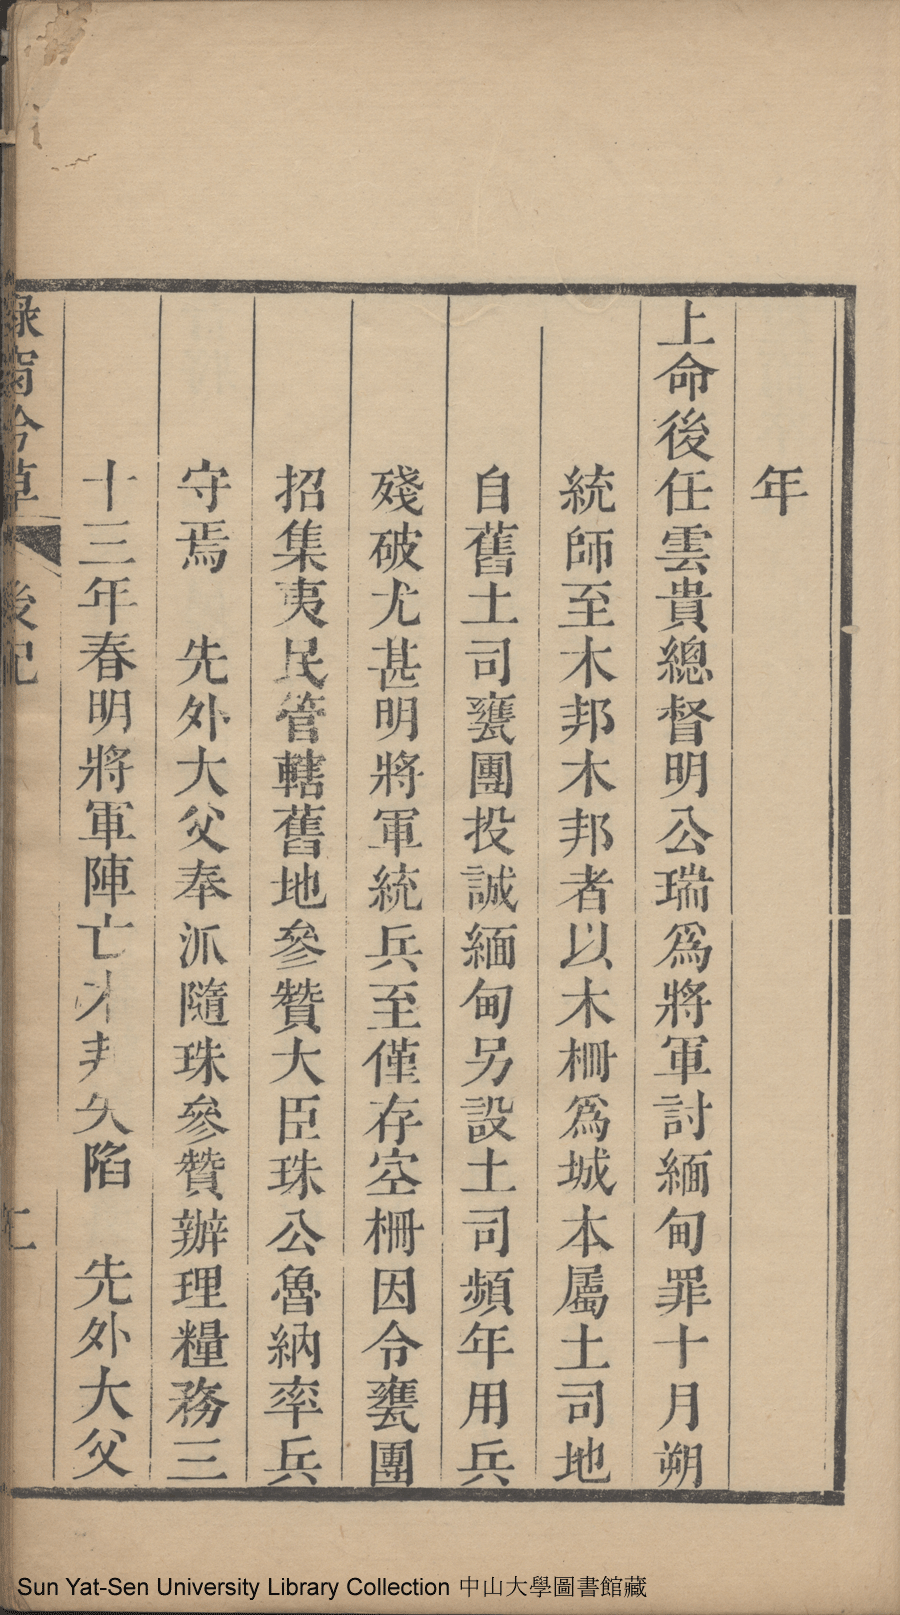 年
上命後任雲貴總督明公瑞爲將軍討緬甸罪十月朔
統師至木邦木邦者以木柵爲城本屬土司地
自舊土司甕團投誠緬甸另設土司頻年用兵
殘破尤甚明將軍統兵至僅存空柵因令甕團
招集夷民管轄舊地參贊大臣珠公魯納率兵
守焉　先外大父奉派隨珠參贊辦理糧務三
十三年春明將軍陣亡木邦失陷　先外大父
後記
二
Sun Yat-Sen University Library Collection 中山大學圖書館藏